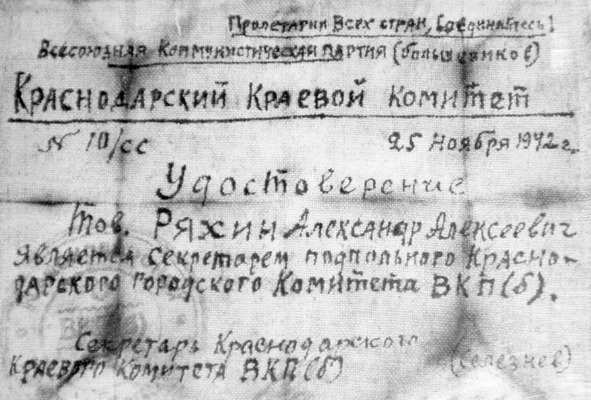 Пролетарии Всех стран, Соединяйтесь!
Всесоюзная Коммунистическая партия (большевиков)
Краснодарский Краевой комитет
№ 10/сс 25 ноября 1942 г.
Удостоверение
Тов. Ряхин Александр Алексеевич
является секретарем подпольного Красно-
дарского городского Комитета ВКП(б).
Секретарь Краснодарского
Краевого комитета ВКП(б) (Селезнев)